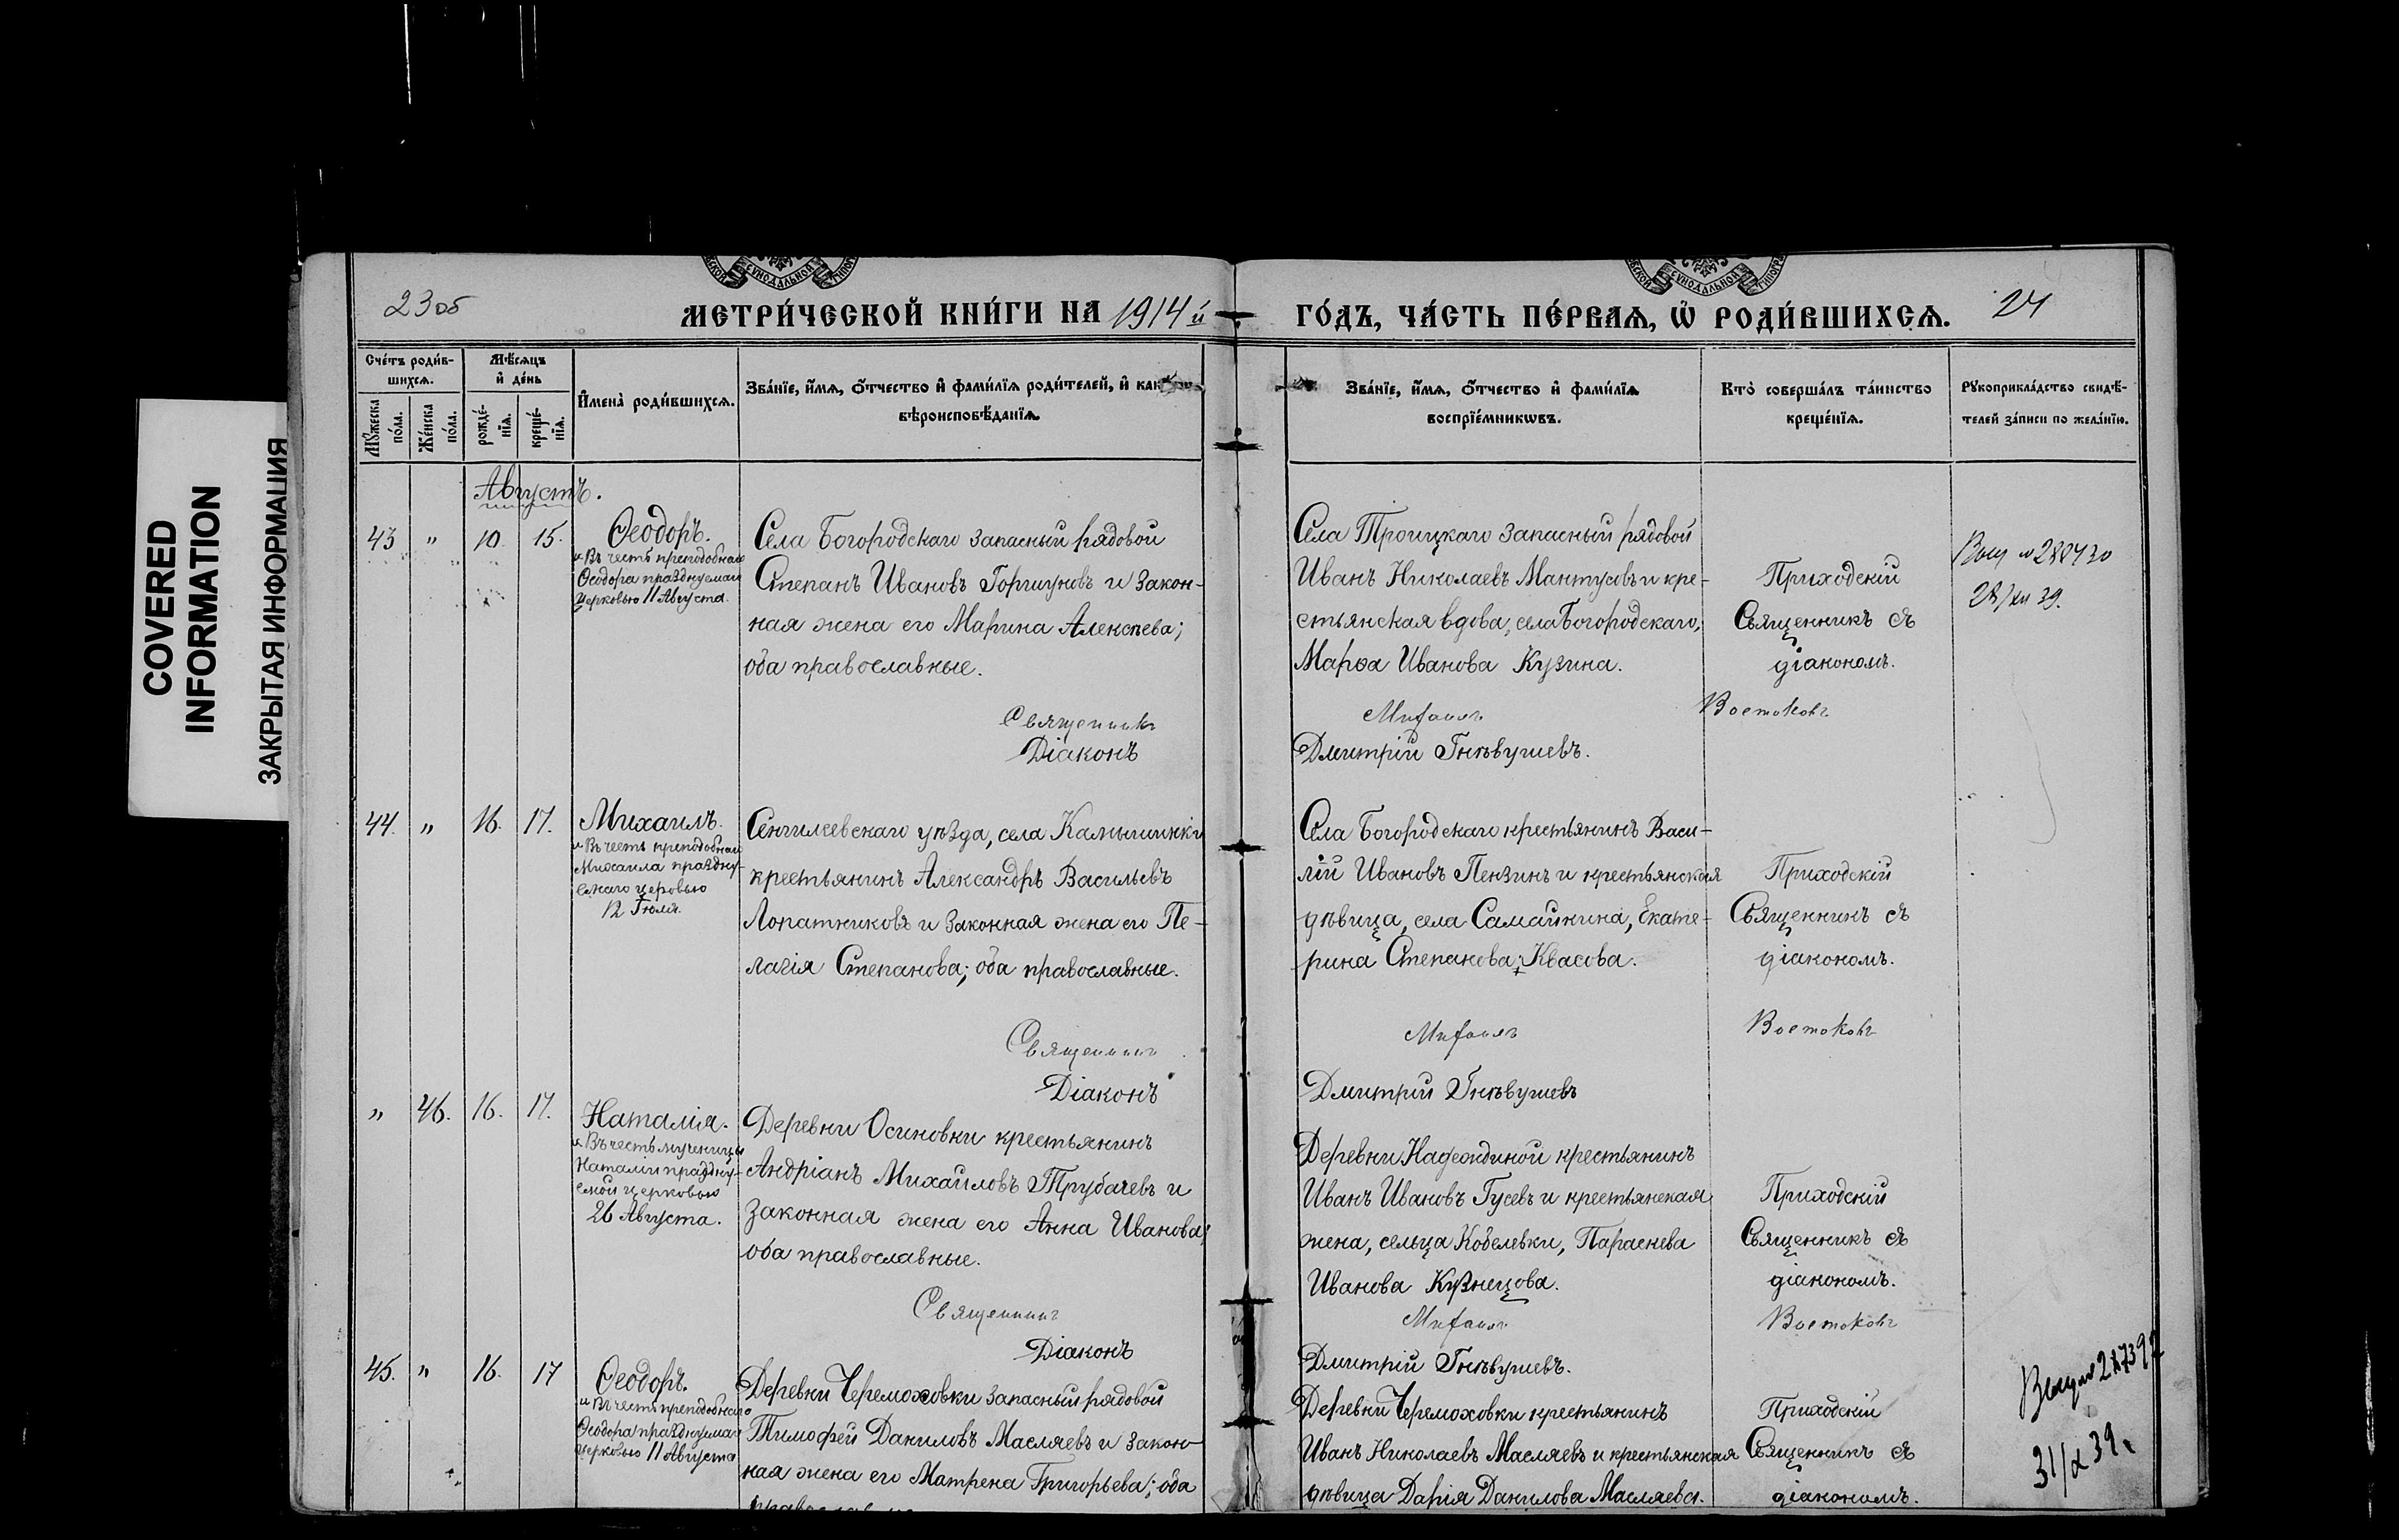 COVERED
INFORMATION
ЗАКРЫТАЯ ИНФОРМАЦИЯ
23 об
МЕТРИ́ЧЕСКОЙ КНИ́ГИ НА 1914 й
ГО́ДЪ, ЧА́СТЬ ПЕ́РВАѦ, Ѡ҆ РОДИ́ВШИХСѦ.
24
Сче́тъ роди́в-
шихсѧ.
Мѣ́сѧцъ
и҆ де́нь
Мꙋ́жеска
по́ла.
Же́нска
по́ла.
рожде́-
нїѧ.
креще́-
нїѧ.
И҆мена̀ роди́вшихсѧ.
Зва́нїе, и҆́мѧ, ѻ҆́тчество и҆ фами́лїѧ роди́телей, и҆
вѣроисповѣ́данїѧ.
Зва́нїе, и҆́мѧ, ѻ҆́тчество и҆ фами́лїѧ
воспрїе́мникѡвъ.
Кто̀ соверша́лъ та́инство
креще́нїѧ.
Рꙋкоприкла́дство свидѣ́-
телей за́писи по жела́нїю.
Августъ.
43 " 10. 15.
Ѳеодоръ.
и Въ честь преподобнаго
Ѳеодора празднуемаго
церковью 11 Августа.
Села Богородскаго запасный рядовой
Степанъ Ивановъ Горшуновъ и закон-
ная жена его Марина Алексѣева;
оба православные.
Священникъ
Діаконъ
Села Троицкаго запасный рядовой
Иванъ Николаевъ Мантусовъ и кре-
стьянская вдова, села Богородскаго,
Марѳа Иванова Кузина.
Михаилъ
Дмитрій Гнѣвушевъ.
Приходскій
Священникъ съ
діакономъ.
Востоковъ
№ 280430
39.
44. " 16. 17.
Михаилъ.
и Въ честь преподобнаго
Михаила праздну-
емаго церковью
12 Іюля.
Сенгилеевскаго уѣзда, села Камышинки
крестьянинъ Александръ Васильевъ
Лопатниковъ и законная жена его Пе-
лагія Степанова; оба православные.
Священникъ
Діаконъ
Села Богородскаго крестьянинъ Васи-
лій Ивановъ Пензинъ и крестьянская
дѣвица, села Самайкина, Екате-
рина Степанова Квасова.
Михаилъ
Дмитрій Гнѣвушевъ
Приходскій
Священникъ съ
діакономъ.
Востоковъ
" 46. 16. 17.
Наталія.
и Въ честь мученицы
Наталіи праздну-
емой церковью
26 Августа.
Деревни Осиновки крестьянинъ
Андріанъ Михайловъ Трубачевъ и
законная жена его Анна Иванова;
оба православные.
Священникъ
Діаконъ
Деревни Надеждиной крестьянинъ
Иванъ Ивановъ Гусевъ и крестьянская
жена, сельца Кобелевки, Параскева
Иванова Кузнецова.
Михаилъ
Дмитрій Гнѣвушевъ.
Приходскій
Священникъ съ
діакономъ.
Востоковъ
45. " 16. 17
Ѳеодоръ.
и Въ честь преподобнаго
Ѳеодора празднуемаго
церковью 11 Августа
Деревни Черемоховки запасный рядовой
Тимофей Даниловъ Масляевъ и закон-
ная жена его Матрена Григорьева; оба
Деревни Черемоховки крестьянинъ
Иванъ Николаевъ Масляевъ и крестьянская
дѣвица Дарія Данилова Масляева.
Приходскій
Священникъ съ
діакономъ.
31/X 39 г.